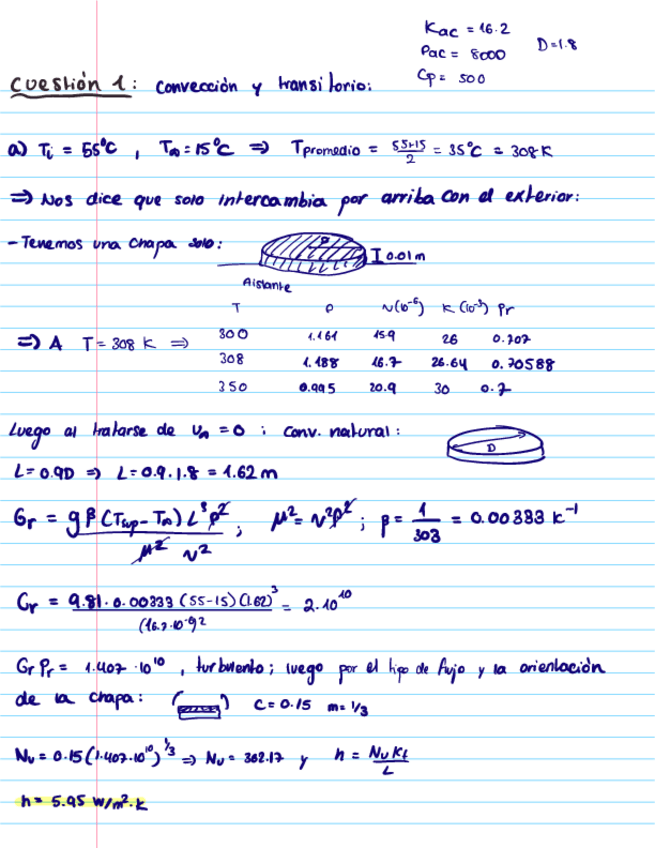 Kac = 16.2
ρac = 8000 D=1.8
Cp = 500
Cuestión 1: Convección y transitorio:
a) Ti = 55°C , T∞ = 15°C ⇒ Tpromedio = 55+15/2 = 35°C = 308K
⇒ Nos dice que solo intercambia por arriba con el exterior:
- Tenemos una chapa solo: I 0.01m
Aislante
T ρ ν(10⁻⁶) K(10⁻³) Pr
300 1.161 15.9 26 0.707
⇒ A T = 308 K ⇒
308 1.188 16.7 26.64 0.70588
350 0.995 20.9 30 0.7
Luego al tratarse de u∞ = 0 ; conv. natural:
D
L = 0.9D ⇒ L = 0.9 · 1.8 = 1.62 m
Gr = gβ(Tsup - T∞)L³ρ²/μ² ν² ; μ² = ν²ρ² ; β = 1/303 = 0.00333 K⁻¹
Gr = 9.81 · 0.00333 (55-15)(1.62)³/(16.7·10⁻⁶)² = 2·10¹⁰
Gr Pr = 1.407 · 10¹⁰ , turbulento; luego por el tipo de flujo y la orientación
de la chapa: C = 0.15 m = 1/3
Nu = 0.15(1.407·10¹⁰)^1/3 ⇒ Nu = 362.17 y h = Nu Kf/L
h = 5.95 W/m²·K